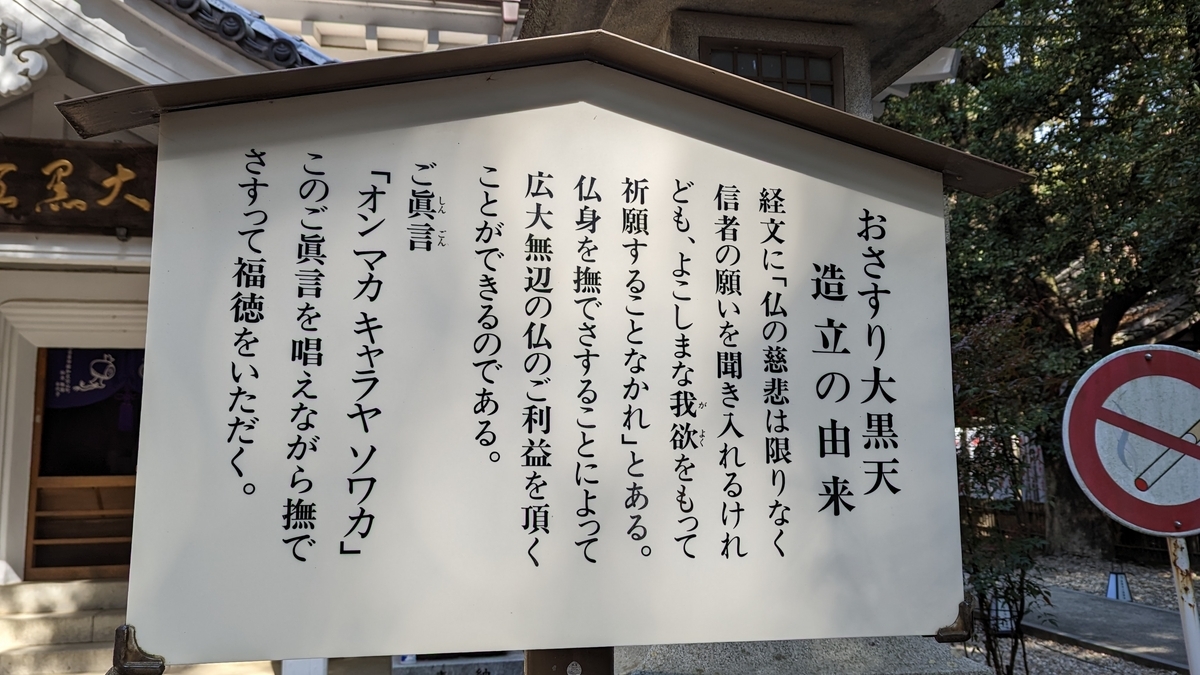 おさすり大黒天
造立の由来
経文に「仏の慈悲は限りなく
信者の願いを聞き入れるけれ
ども、よこしまな我欲をもって
がよく
祈願することなかれ」とある。
仏身を撫でさすることによって
広大無辺の仏のご利益を頂く
ことができるのである。
ご眞言
しんごん
「オンマカキャラヤソワカ」
このご眞言を唱えながら撫で
さすって福徳をいただく。
大黒